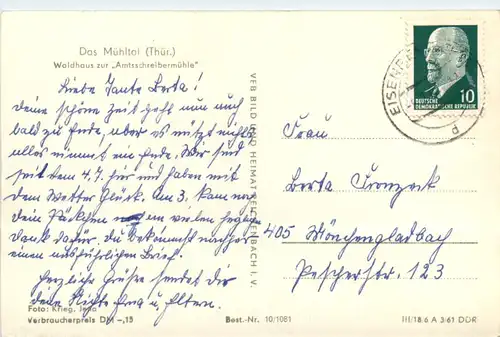 Das Mühltal (Thür.)
Waldhaus zur „Amtsschreibermühle"
Liebe Tante Berta!
deine schöne Zeit geht nun auch
bald zu Ende, aber es nützt nichts
alles nimmt ein Ende. Wir sind
seit dem 4.7. hier und haben mit
dem Wetter Glück. Am 3. kam noch
dein Päckchen an vielen
Dank dafür. Du bekommst nachher
einen ausführlichen Brief.
Herzliche Grüße sendet dir
deine Nichte u. Eltern.
Foto: Krieg, Jena
Verbraucherpreis DM -,15
Best.-Nr. 10/1081
VEB BILD UND HEIMAT REICHENBACH I. V.
EISENB
d
10
DEUTSCHE
DEMOKRATISCHE REPUBLIK
Frau
Berta
405 Mönchengladbach
Pescherstr. 123
III/18/6 A 3/61 DDR